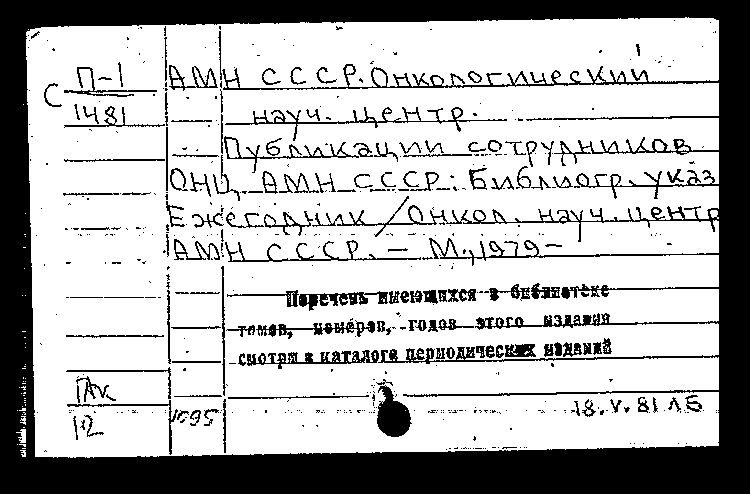 С П-1 АМН СССР. Онкологический
1481 науч. центр.
Публикации сотрудников
ОНЦ АМН СССР: Библиогр. указ
Ежегодник / Онкол. науч. центр
АМН СССР. — М., 1979—
Перечень имеющихся в библиотеке
томов, номеров, годов этого издания
смотри в каталоге периодических изданий
ГАК
12 1095 18.V.81 ЛБ